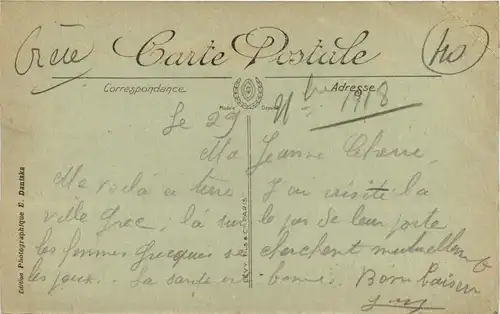 Crète
40
Carte Postale
Correspondance
Adresse
Modèle Déposé
Le 29 9bre 1918
Ma Jeanne Chérie,
Me voilà à terre J'ai visité la
ville Grec, là sur le pas de leur porte
les femmes Grecques se cherchent mutuellement
les poux. La santé est bonne. Bons baisers
Edition Photographique E. Damlaka
LÉVY FILS & Cie PARIS